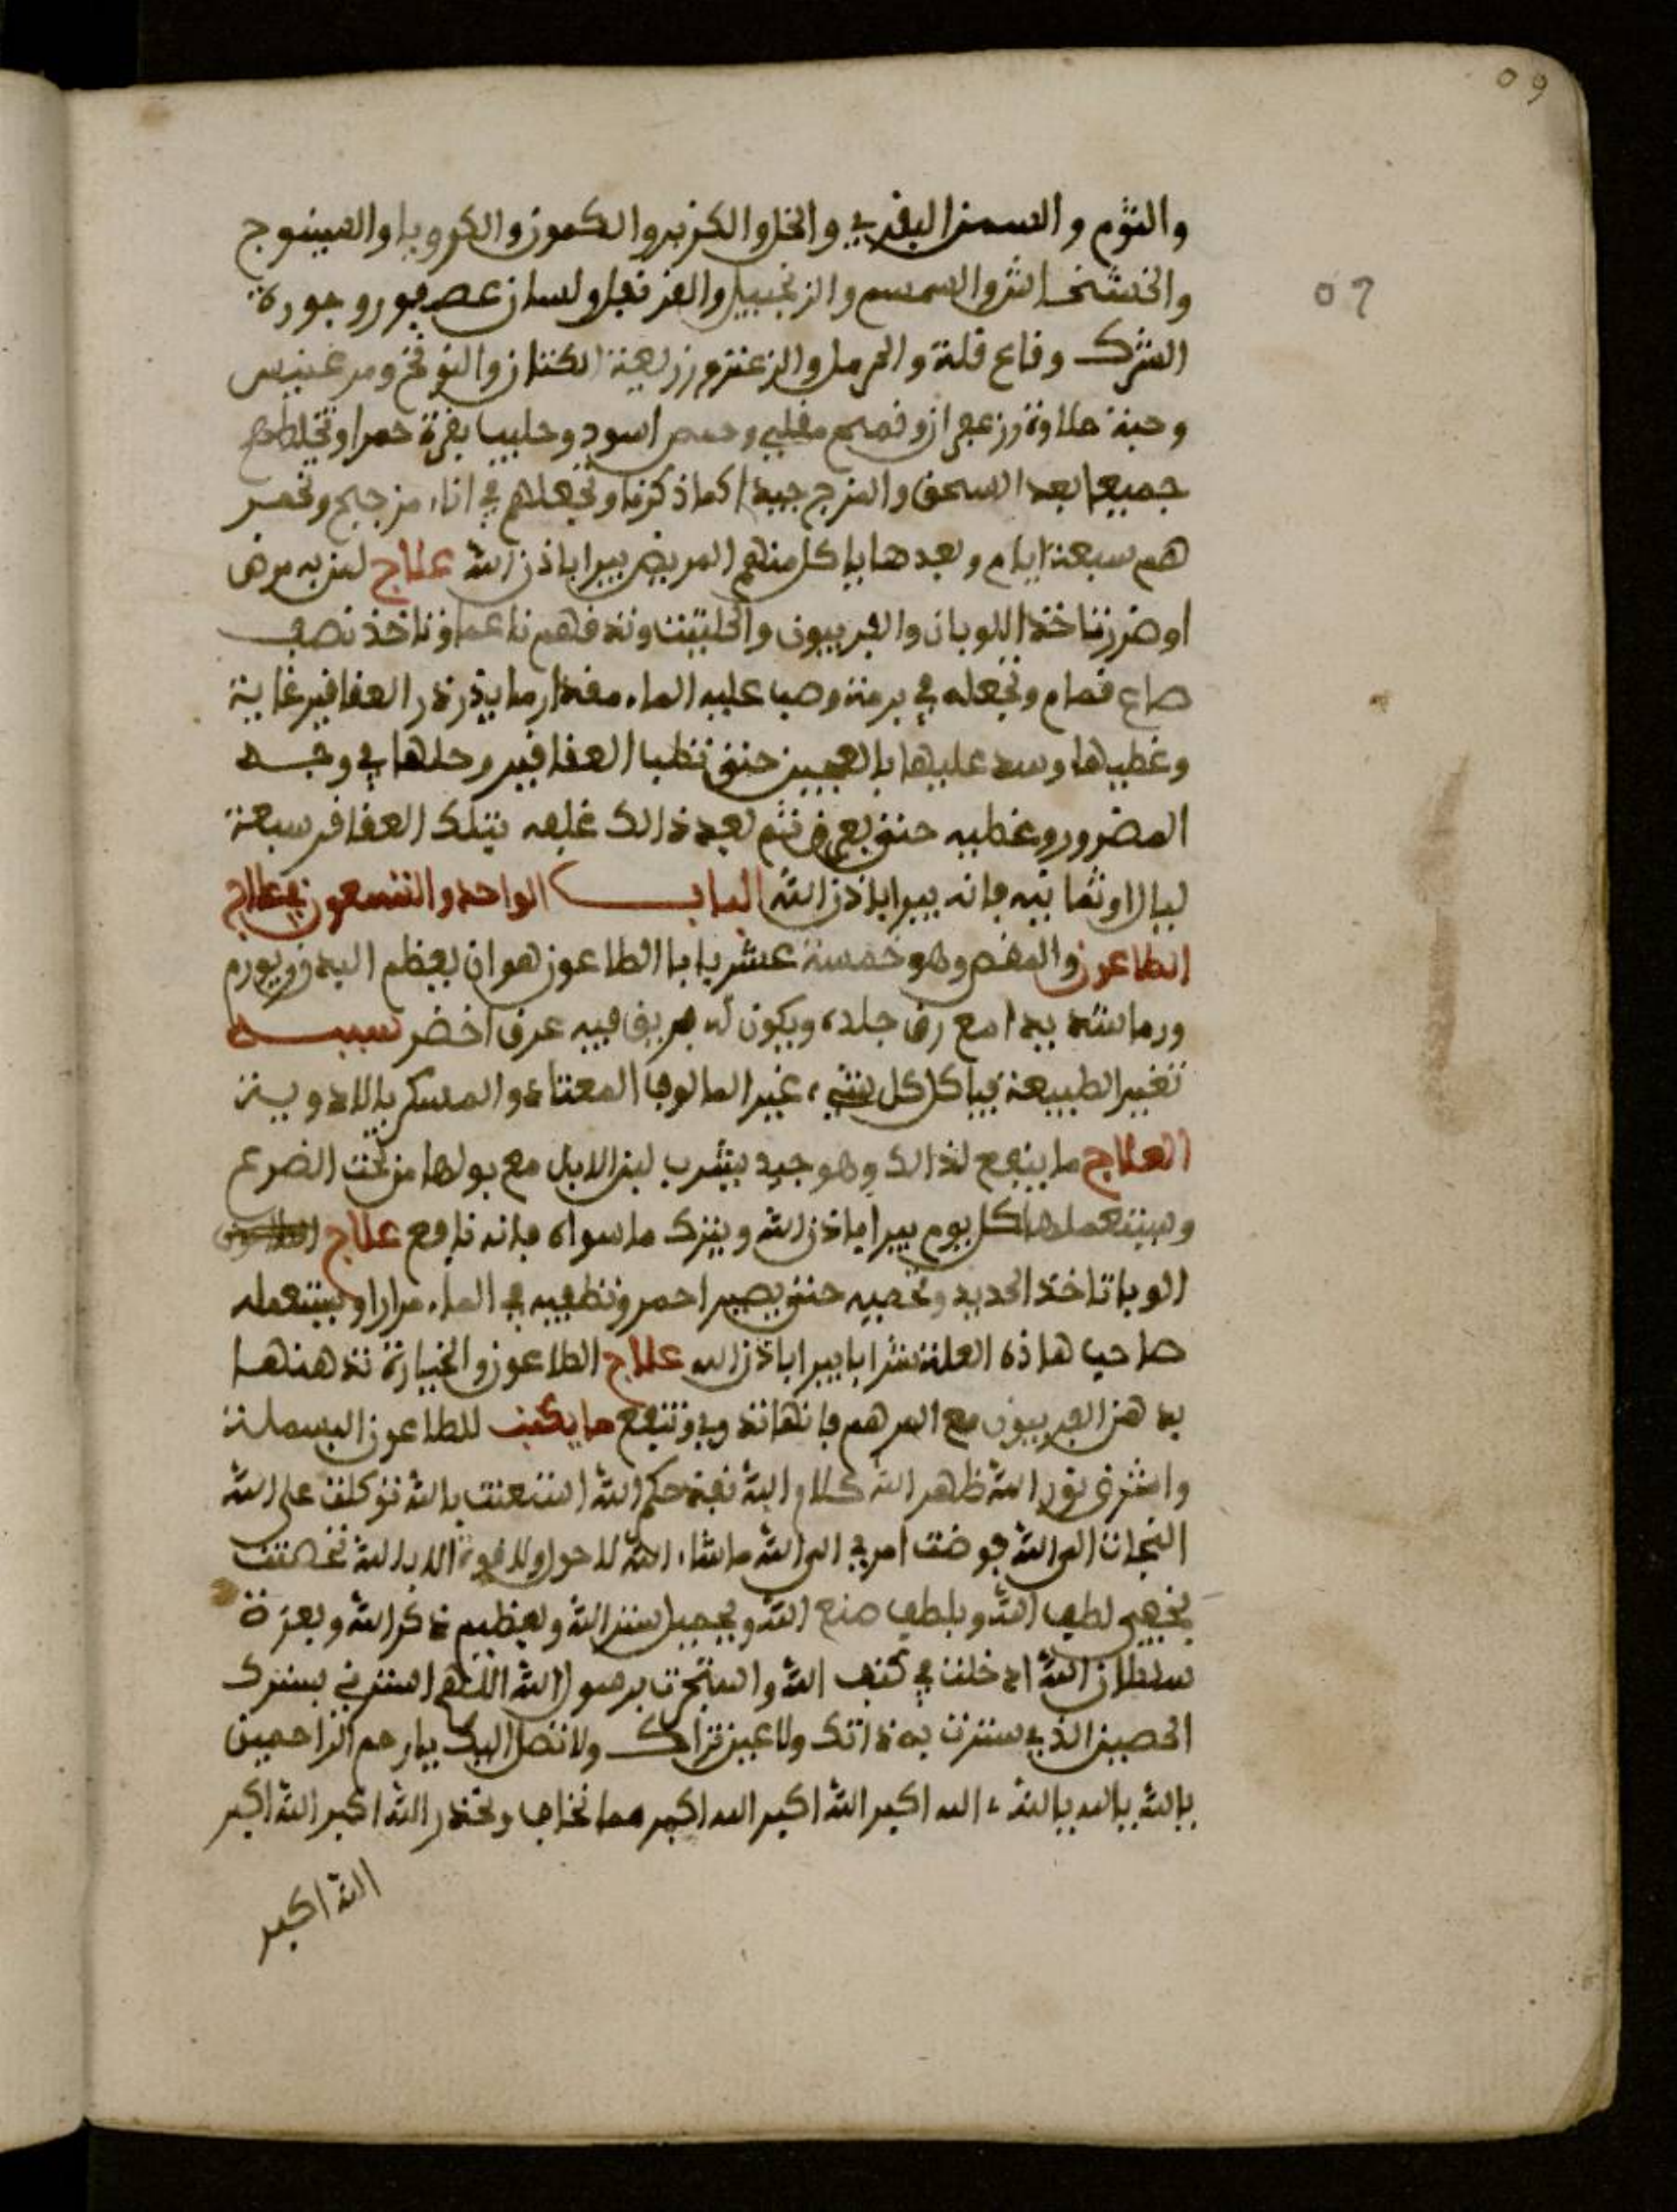 09
والثوم والسمن البقري والخل والكزبر والكمون والكرويا والسينوج
09
والخشخاش والسمسم والزنجبيل والقرنفل ولسان عصفور وجورة
الشرك وقاع قلة والحرمل والزعتر وزريعة الكتان والنوخ ومرغنيس
وحبة حلاوة وزعفران وقمح مقلي وحمص اسود وحليب بقرة حمرا وتخلطهم
جميعا بعد السحق والمزج جيدا كما ذكرنا وتجعلهم في اناء من جبح وتخمر
هم سبعة ايام وبعدها ياكل منهم المريض يبرا باذن الله علاج لمن به مرض
او ضرر تاخذ اللوبان والفربيون والحلتيت وتدقهم ناعما وتاخذ نصف
صاع قمام وتجعله في برمة وصب عليه الماء مقدار ما يذرذر العقاقير غاية
وغطيها وسد عليها بالعجين حتى تطيب العقاقير وحلها في وجه
المضرور وغطيه حتى يعرق ثم بعد ذالك غلفه بتلك العقاقر سبعة
ليال او ثمانيه فانه يبرا باذن الله الباب الواحد والتسعون في علاج
الطاعون والمغص وهو خمسة عشر بابا الطاعون هو ان يعظم البدن ويورم
ورما شديدا مع رق جلده ويكون له بريق فيه عرق اخضر سببه
تغيير الطبيعة فياكل كل شيء غير المالوف المعتاد والمسكر بالادوية
العلاج ما ينفع لذالك وهو جيد يشرب لبن الابل مع بولها من تحت الضرع
ويستعملها كل يوم يبرا باذن الله ويترك ما سواه فانه نافع علاج
الوبا تاخذ الحديد وتحميه حتى يصير احمر وتطفيه في الماء مرارا ويستعمله
صاحب هاذه العلة شرابا يبرا باذن الله علاج الطاعون والخيارة تدهنها
بدهن الفربيون مع المرهم فانها تذوب وتنفع ما يكتب للطاعون البسملة
واشرق نور الله ظهر الله كلام الله نفذ حكم الله استعنت بالله توكلت على الله
التجات الى الله فوضت امري الى الله ما شاء الله لا حول ولا قوة الا بالله تحصنت
بخفي لطف الله وبلطف صنع الله وبجميل ستر الله وبعظيم ذكر الله وبعزة
سلطان الله ادخلت في كنف الله واستجرت برسول الله اللهم استرني بسترك
الحصين الذي سترت به ذاتك ولا عين تراك ولا تصل اليك يا ارحم الراحمين
بالله بالله بالله الله اكبر الله اكبر الله اكبر مما نخاف ونحذر الله اكبر الله اكبر
الله اكبر